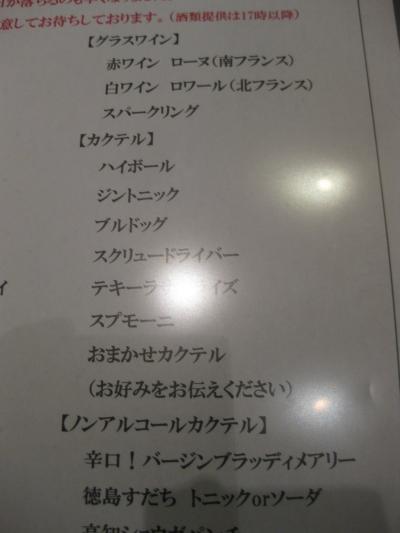 意してお待ちしております。(酒類提供は17時以降)
【グラスワイン】
赤ワイン ローヌ(南フランス)
白ワイン ロワール(北フランス)
スパークリング
【カクテル】
ハイボール
ジントニック
ブルドッグ
スクリュードライバー
テキーラサンライズ
スプモーニ
おまかせカクテル
(お好みをお伝えください)
【ノンアルコールカクテル】
辛口!バージンブラッディメアリー
徳島すだち トニックorソーダ
高知ショウガパンチ